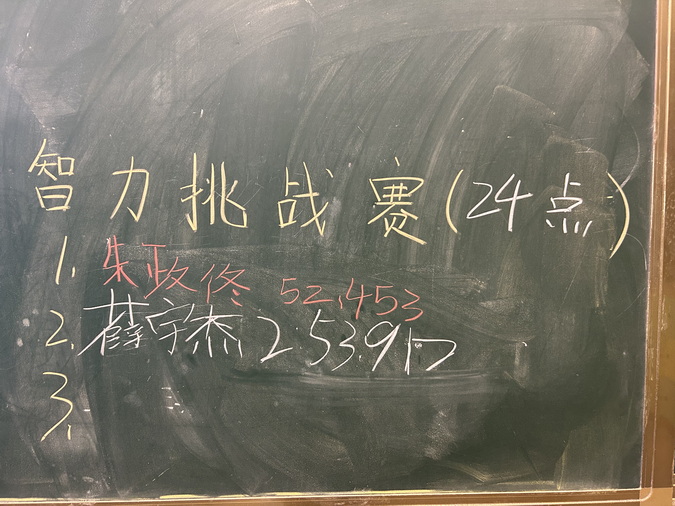 智力挑战赛(24点)
1. 朱政佟 52.453
2. 薛宇杰 2:53.917
3.